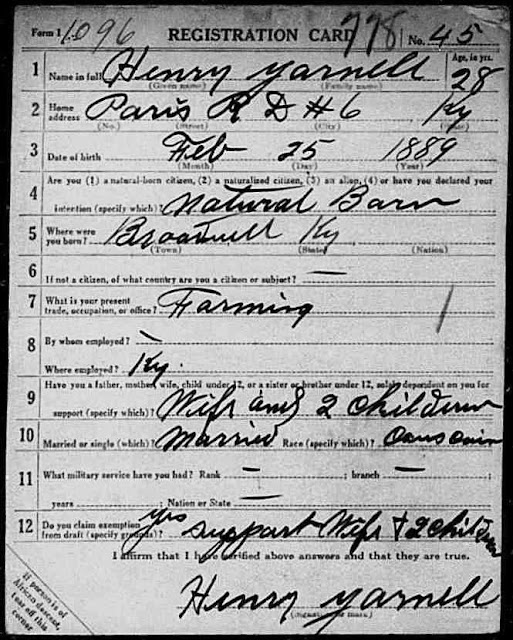 Form 1 1096 REGISTRATION CARD 778 No. 45
1 Name in full Henry Yarnell Age, in yrs. 28
(Given name) (Family name)
2 Home address Paris R D #6 Ky
(No.) (Street) (City) (State)
3 Date of birth Feb 25 1889
(Month) (Day) (Year)
4 Are you (1) a natural-born citizen, (2) a naturalized citizen, (3) an alien, (4) or have you declared your
intention (specify which)? Natural Born
5 Where were you born? Ky
(Town) (State) (Nation)
6 If not a citizen, of what country are you a citizen or subject? —
7 What is your present trade, occupation, or office? Farming
8 By whom employed? —
Where employed? Ky.
9 Have you a father, mother, wife, child under 12, or a sister or brother under 12, solely dependent on you for
support (specify which)? Wife and 2 Childern
10 Married or single (which)? Married Race (specify which)?
11 What military service have you had? Rank — ; branch — ;
years ; Nation or State —
12 Do you claim exemption from draft (specify grounds)? yes support Wife + 2 Childern
I affirm that I have verified above answers and that they are true.
Henry Yarnell
(Signature or mark)
If person is of
African descent,
tear off this
corner